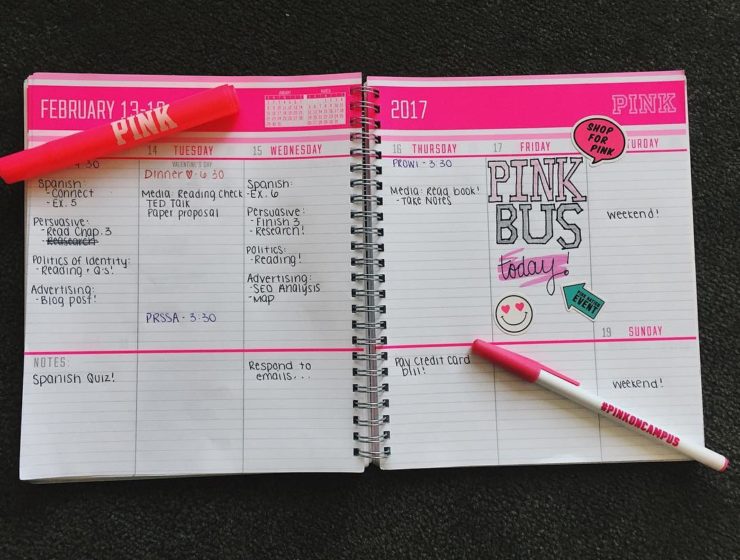 FEBRUARY 13-19
PINK
JANUARY
MARCH
14 TUESDAY
VALENTINE'S DAY
Dinner ♡ - 6:30
Media: Reading Check
TED Talk
Paper proposal
PRSSA - 3:30
15 WEDNESDAY
Spanish:
-Ex. 6
Persuasive:
-Finish 3
-Research!
Politics:
-Reading!
Advertising:
-SEO Analysis
-Map
Respond to
emails...
4:30
Spanish:
-Connect
-Ex. 5
Persuasive:
-Read Chap. 3
-Research
Politics of Identity:
-Reading + Q's!
Advertising:
-Blog post!
NOTES:
Spanish Quiz!
2017
PINK
16 THURSDAY
PROWL - 3:30
Media: Read book!
-Take Notes
Pay credit card
bill!
17 FRIDAY
PINK
BUS
today!
PINK NATION
EVENT
SHOP
FOR
PINK
URDAY
weekend!
19 SUNDAY
weekend!
#PINKONCAMPUS